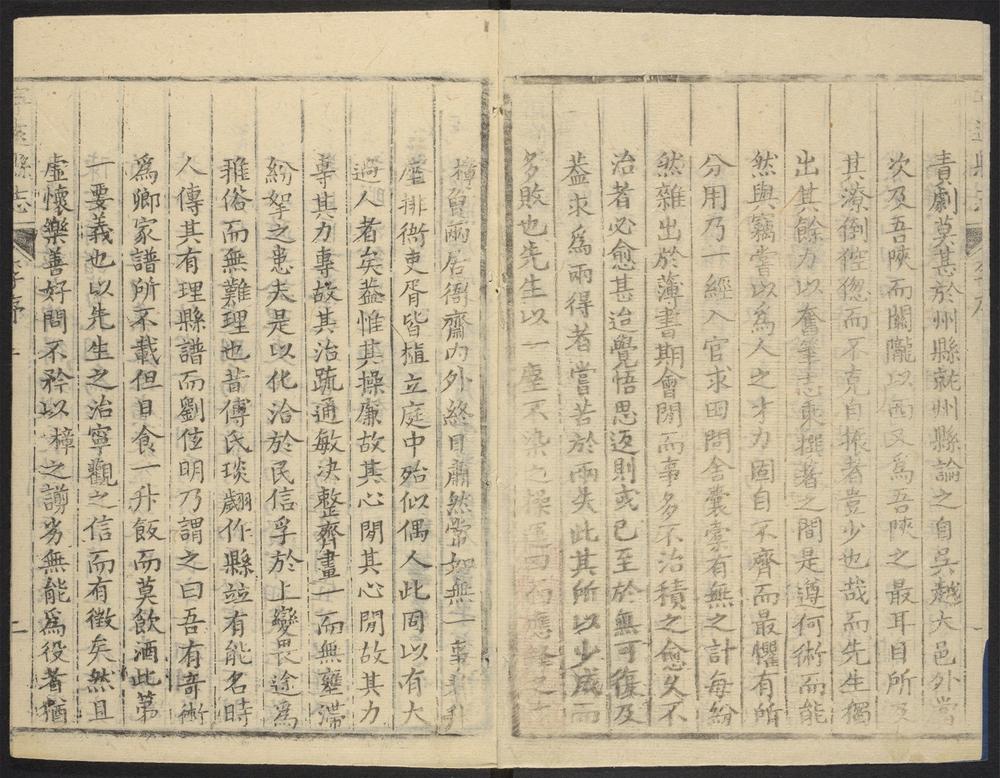 責劇莫甚於州縣就州縣論之自吳越大邑外當
次及吾陝而關隴以西又為吾陝之最耳目所及
其潦倒倥偬而不克自振者豈少也哉而先生獨
出其餘力以奮筆志乘撰著之間是遵何術而能
然與竊嘗以為人之才力固自不齊而最懼有所
分用乃一經入官求田問舍囊橐有無之計每紛
然雜出於薄書期會閒而事多不治積之愈久不
治者必愈甚迨覺悟思返則或已至於無可復及
葢求為兩得者嘗苦於兩失此其所以少成而
多敗也先生以一塵不染之操
樟曾兩居衙齋內外終日肅然常如無一事者升
座排衙吏胥皆植立庭中殆似偶人此固以有大
過人者矣葢惟其操廉故其心閒其心閒故其力
專其力專故其治疏通敏決整齊畫一而無壅滯
紛拏之患夫是以化洽於民信孚於上變畏途為
雅俗而無難理也昔傅氏琰翽作縣竝有能名時
人傳其有理縣譜而劉伭明乃謂之曰吾有奇術
為卿家譜所不載但日食一升飯而莫飲酒此第
一要義也以先生之治寧觀之信而有徵矣然且
虛懷樂善好問不矜以樟之謭劣無能為役者猶
縣志
序
二